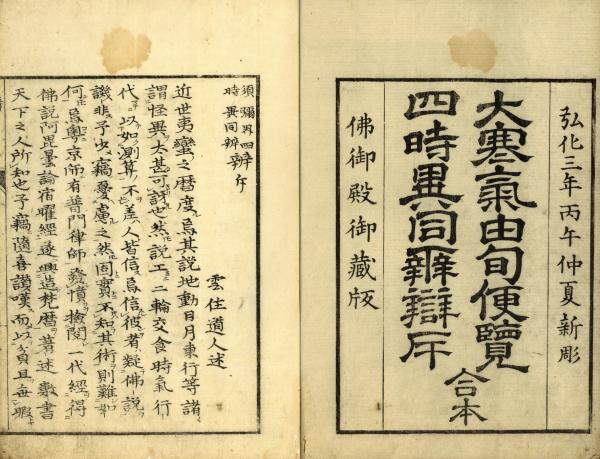 弘化三年丙午仲夏新彫
大寒氣由旬便覽
四時異同辨辯斥
合本
佛御殿御藏版
須彌界四
時異同辨
辨斥
雲住道人述
近世夷蠻之暦度爲其說地動日月東行等諸
謂怪異太甚可訝也然說工二輪交食時氣行
代以如測算不差人皆信爲信彼者疑佛說
譏非予史竊憂慮之然固實不知其術則難如
何爲粤京師有普門律師發憤撿閱一代經得
佛說阿毘曇論宿曜經遂興造梵暦著述數書
天下之人所知也予竊隨喜讃嘆而以貧且無暇